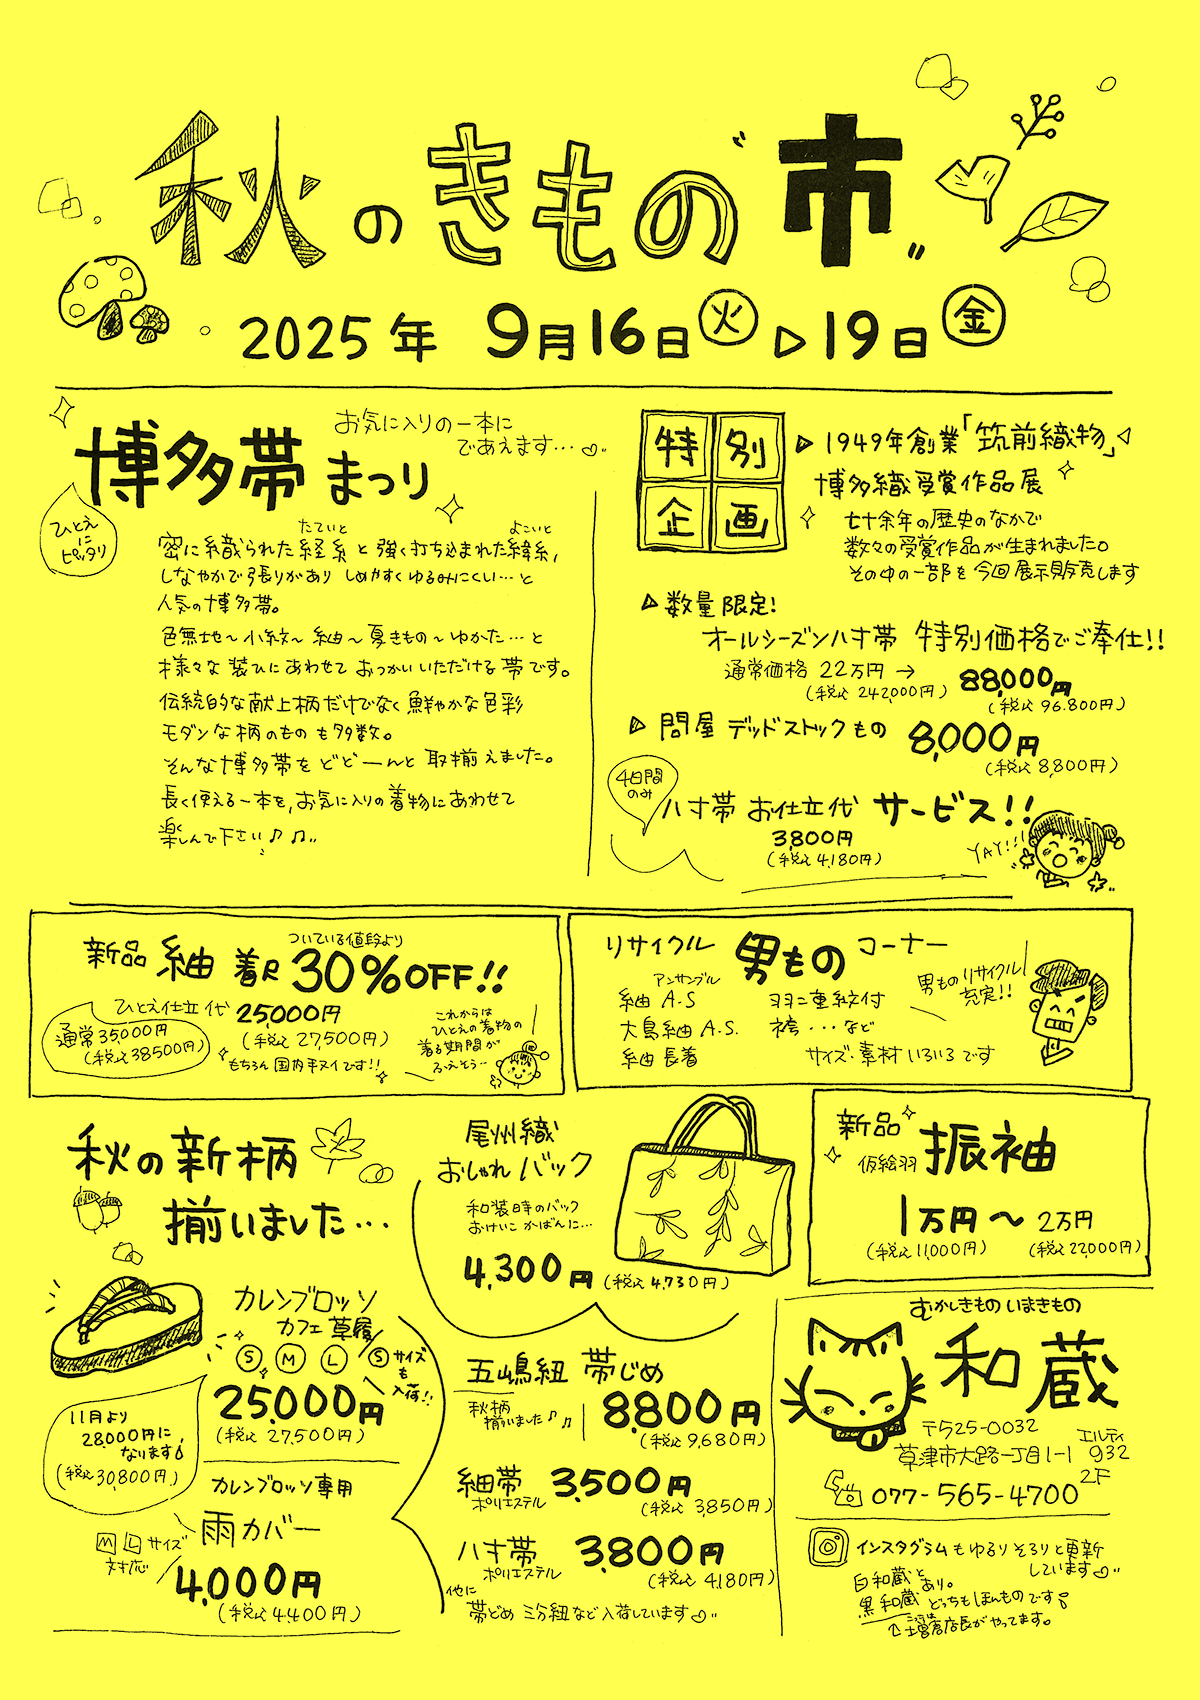 秋のきもの市
2025年 9月16日㊋▷19日㊎
博多帯まつり
お気に入りの一本に
であえます…
ひとえ
に
ピッタリ
密に織られた経糸と強く打ち込まれた緯糸、
たていと
よこいと
しなやかで張りがあり しめやすくゆるみにくい…と
人気の博多帯。
色無地〜小紋〜紬〜夏きもの〜ゆかた…と
様々な装いにあわせておつかいいただける帯です。
伝統的な献上柄だけでなく鮮やかな色彩
モダンな柄のものも多数。
そんな博多帯をどどーんと取揃えました。
長く使える一本を、お気に入りの着物にあわせて
楽しんで下さい♪♫
特別
企画
▷1949年創業「筑前織物」◁
博多織受賞作品展
七十余年の歴史のなかで
数々の受賞作品が生まれました。
その中の一部を今回展示販売します
▷数量限定!
オールシーズン八寸帯 特別価格でご奉仕!!
通常価格 22万円→ 88,000円
(税込 242,000円) (税込 96.800円)
▷問屋デッドストックもの 8,000円
(税込 8,800円)
4日間
のみ
八寸帯 お仕立代 サービス!!
3,800円
(税込 4,180円)
YAY!!
新品 紬 着尺 30%OFF!!
ついている値段より
ひとえ仕立代 25,000円
(税込 27,500円)
通常35,000円
(税込38500円)
もちろん国内手ヌイです!!
これからは
ひとえの着物の
着る期間が
ふえそう…
リサイクル 男もの コーナー
アンサンブル
紬 A.S 羽二重紋付
大島紬 A.S. 袴・・・など
紬 長着 サイズ・素材いろいろです
男ものリサイクル
充実!!
秋の新柄
揃いました…
尾州織
おしゃれバック
和装時のバック
おけいこかばんに…
4,300円 (税込 4,730円)
新品
仮絵羽 振袖
1万円〜2万円
(税込11,000円) (税込22,000円)
カレンブロッソ
カフェ草履
S M L
Sサイズ
も
入荷!!
25,000円
(税込 27,500円)
11月より
28,000円に
なります
(税込30,800円)
カレンブロッソ専用
雨カバー
M L サイズ
対応
4,000円
(税込 4,400円)
五嶋紐 帯じめ
秋柄
揃いました♪♪
8,800円
(税込 9,680円)
細帯 3,500円
ポリエステル (税込 3,850円)
八寸帯 3,800円
ポリエステル (税込 4,180円)
他に
帯どめ 三分紐など入荷しています
むかしきもの いまきもの
和蔵
〒525-0032
草津市大路一丁目1-1 エルティ932
2F
077-565-4700
インスタグラムもゆるりそろりと更新
しています
白和蔵と
黒和蔵 あり。
どっちもほんものです
店長がやってます。